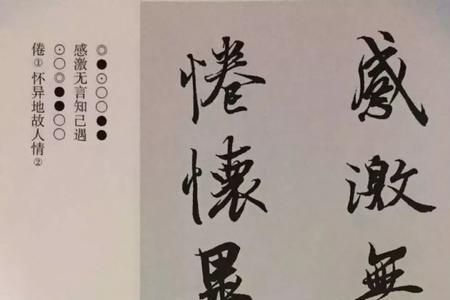 感激無
惓懷異
◎●⊙○○●●
感激无言知己遇
⊙○◎●●○○
倦①怀异地故人情②